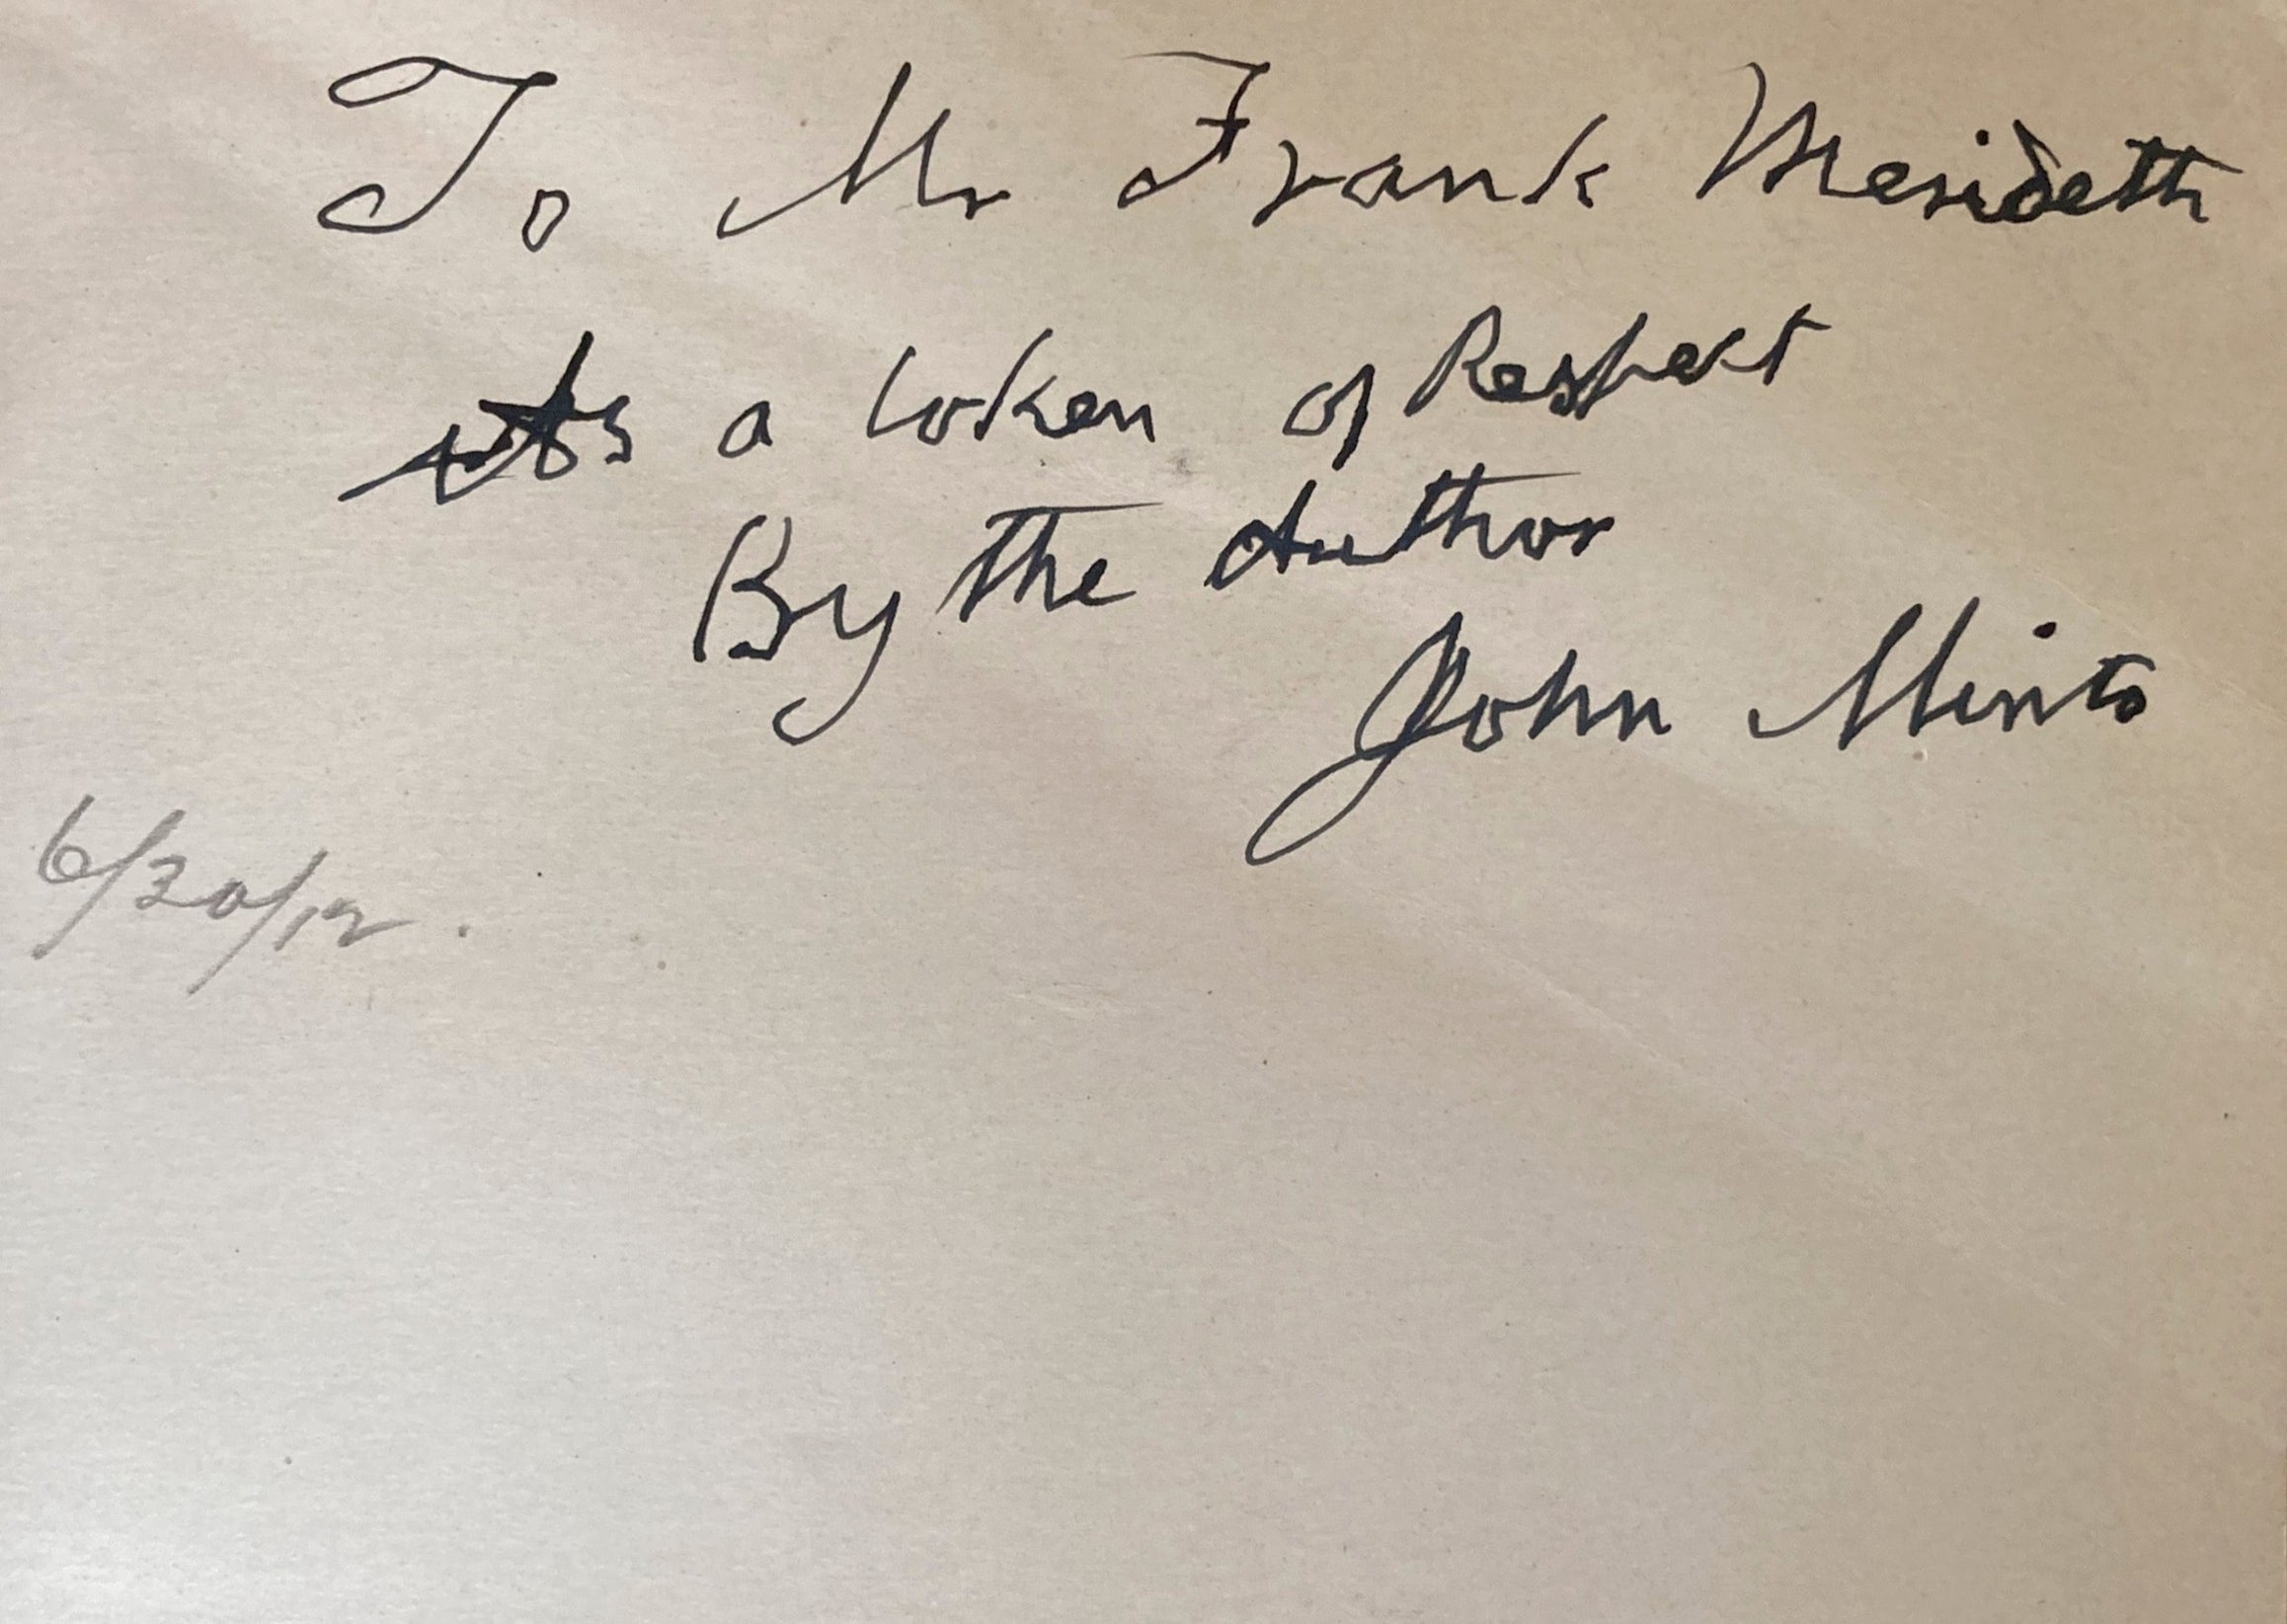 To Mr Frank Merideth
As a token of Respect
By the Author
John Minto
6/30/12.